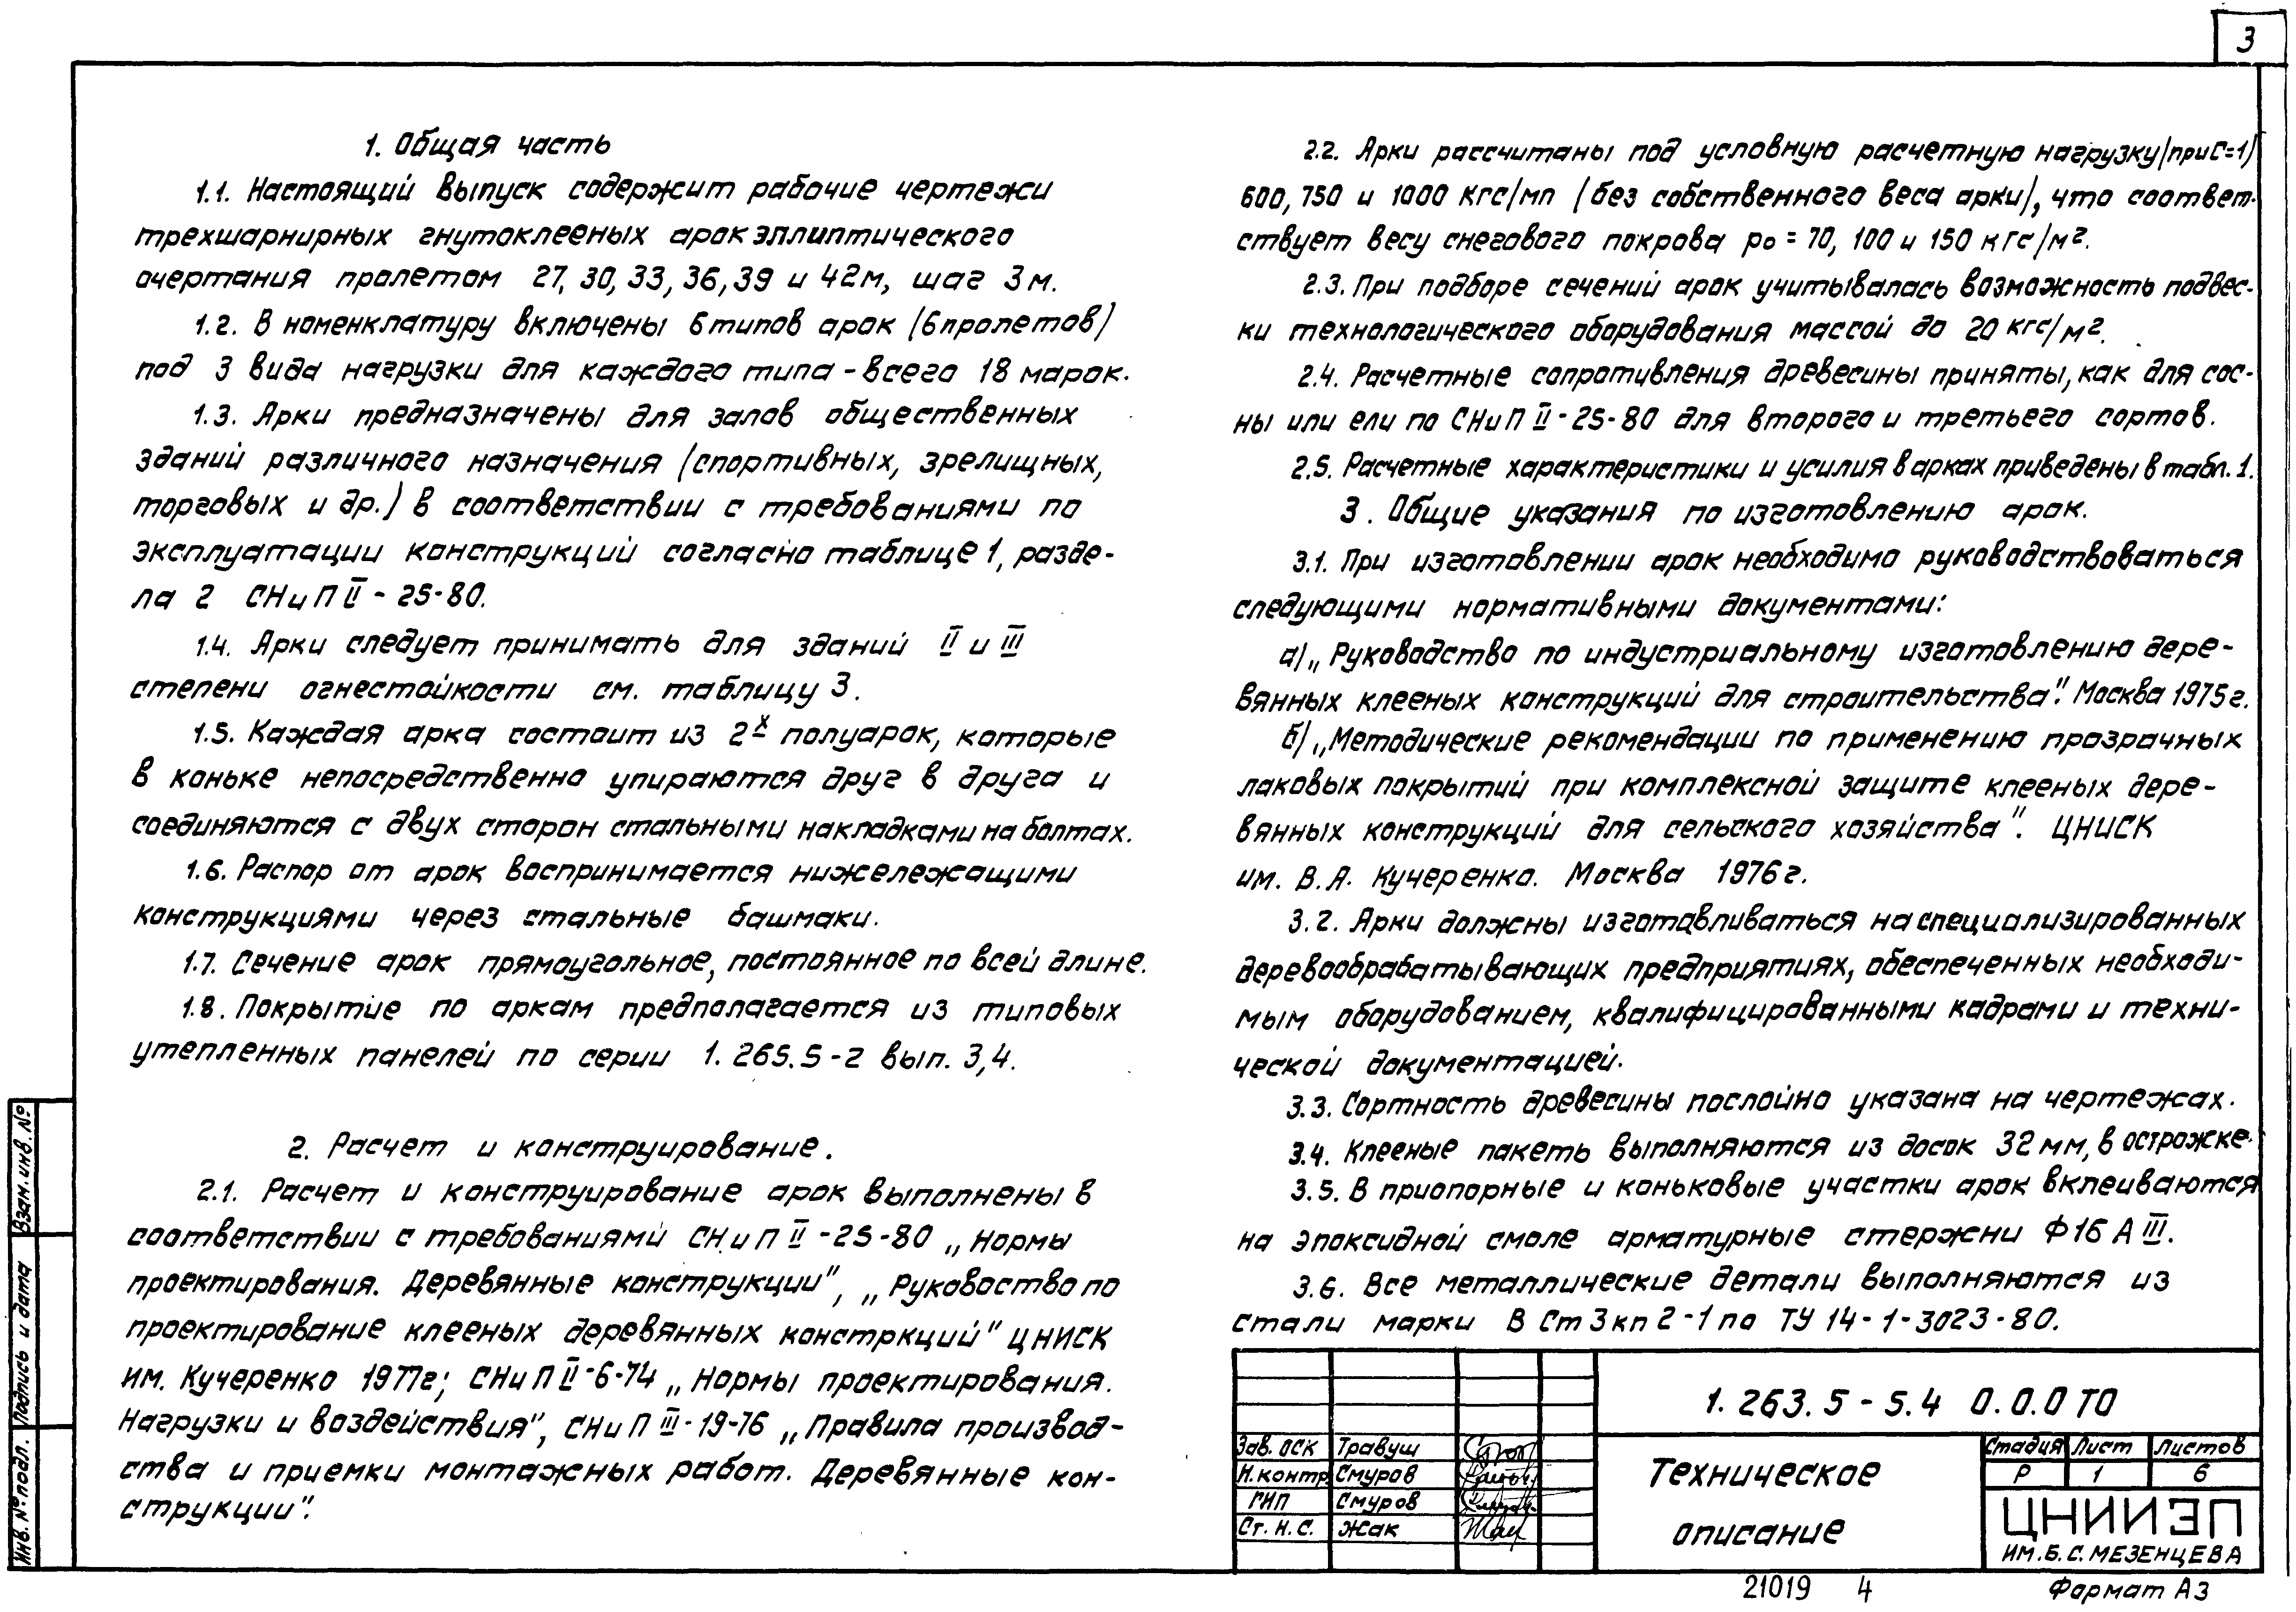 3
1. Общая часть
1.1. Настоящий выпуск содержит рабочие чертежи
трехшарнирных гнутоклееных арок эллиптического
очертания пролетом 27, 30, 33, 36, 39 и 42м, шаг 3м.
1.2. В номенклатуру включены 6 типов арок (6 пролетов)
под 3 вида нагрузки для каждого типа - всего 18 марок.
1.3. Арки предназначены для залов общественных
зданий различного назначения (спортивных, зрелищных,
торговых и др.) в соответствии с требованиями по
эксплуатации конструкций согласно таблице 1, разде-
ла 2 СНиП II - 25-80.
1.4. Арки следует принимать для зданий II и III
степени огнестойкости см. таблицу 3.
1.5. Каждая арка состоит из 2х полуарок, которые
в коньке непосредственно упираются друг в друга и
соединяются с двух сторон стальными накладками на болтах.
1.6. Распор от арок воспринимается нижележащими
конструкциями через стальные башмаки.
1.7. Сечение арок прямоугольное, постоянное по всей длине.
1.8. Покрытие по аркам предполагается из типовых
утепленных панелей по серии 1.265.5-2 вып. 3,4.
2. Расчет и конструирование.
2.1. Расчет и конструирование арок выполнены в
соответствии с требованиями СНиП II -25-80 „Нормы
проектирования. Деревянные конструкции", „Руковоство по
проектирование клееных деревянных констркций" ЦНИСК
им. Кучеренко 1977г; СНиП II-6-74 „Нормы проектирования.
Нагрузки и воздействия", СНиП III-19-76 „Правила производ-
ства и приемки монтажных работ. Деревянные кон-
струкции".
2.2. Арки рассчитаны под условную расчетную нагрузку (при С=1)
600, 750 и 1000 кгс/мп (без собственного веса арки), что соответ-
ствует весу снегового покрова ро = 70, 100 и 150 кгс/м².
2.3. При подборе сечений арок учитывалась возможность подвес-
ки технологического оборудования массой до 20 кгс/м².
2.4. Расчетные сопротивления древесины приняты, как для сос-
ны или ели по СНиП II-25-80 для второго и третьего сортов.
2.5. Расчетные характеристики и усилия в арках приведены в табл. 1.
3. Общие указания по изготовлению арок.
3.1. При изготовлении арок необходимо руководствоваться
следующими нормативными документами:
а) „Руководство по индустриальному изготовлению дере-
вянных клееных конструкций для строительства". Москва 1975г.
б) „Методические рекомендации по применению прозрачных
лаковых покрытий при комплексной защите клееных дере-
вянных конструкций для сельского хозяйства". ЦНИСК
им. В.А. Кучеренко. Москва 1976г.
3.2. Арки должны изготавливаться на специализированных
деревообрабатывающих предприятиях, обеспеченных необходи-
мым оборудованием, квалифицированными кадрами и техни-
ческой документацией.
3.3. Сортность древесины послойно указана на чертежах.
3.4. Клееные пакеть выполняются из досок 32 мм, в острожке.
3.5. В приопорные и коньковые участки арок вклеиваются
на эпоксидной смоле арматурные стержни Ф16 А III.
3.6. Все металлические детали выполняются из
стали марки В Ст 3 кп 2-1 по ТУ 14-1-3023-80.
Взам. инв. №
Подпись и дата
Инв. № подл.
1.263.5-5.4 0.0.0 ТО
Зав. ОСК Травуш
Н.контр Смуров
ГИП Смуров
Ст. Н.С. Жак
Техническое
описание
Стадия Лист Листов
Р 1 6
ЦНИИЭП
ИМ. Б.С. МЕЗЕНЦЕВА
21019 4
Формат А3